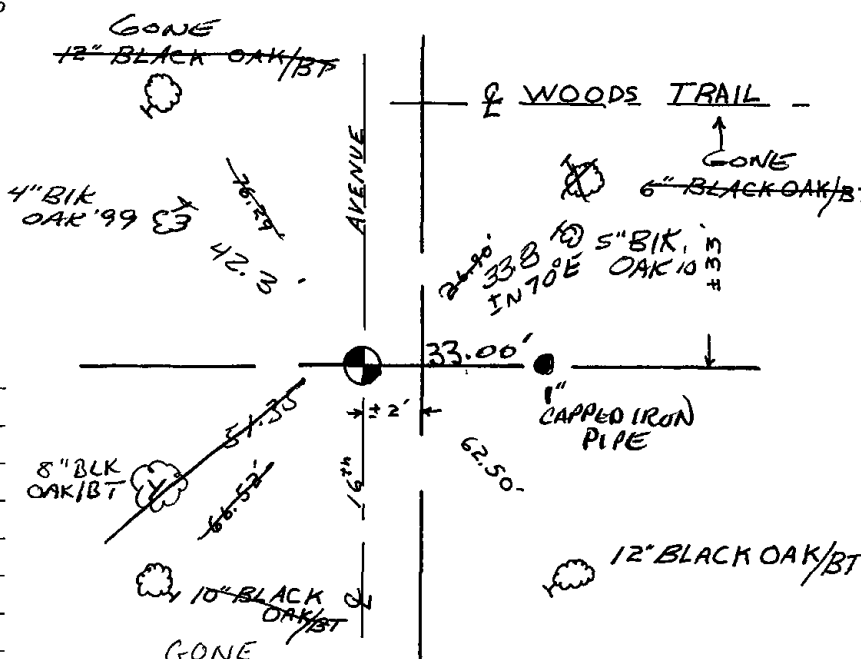 GONE
12" BLACK OAK/BT
℄ WOODS TRAIL
AVENUE
GONE
6" BLACK OAK/BT
4" BlK
OAK '99
76.29'
42.3'
26.90'
33.8
IN 70°E
5" BlK.
OAK 10
±33'
33.00'
±2'
1"
CAPPED IRON
PIPE
51.35'
8" BLK
OAK/BT
66.52'
16th
62.50
12" BLACK OAK/BT
10" BLACK
OAK/BT
℄
GONE